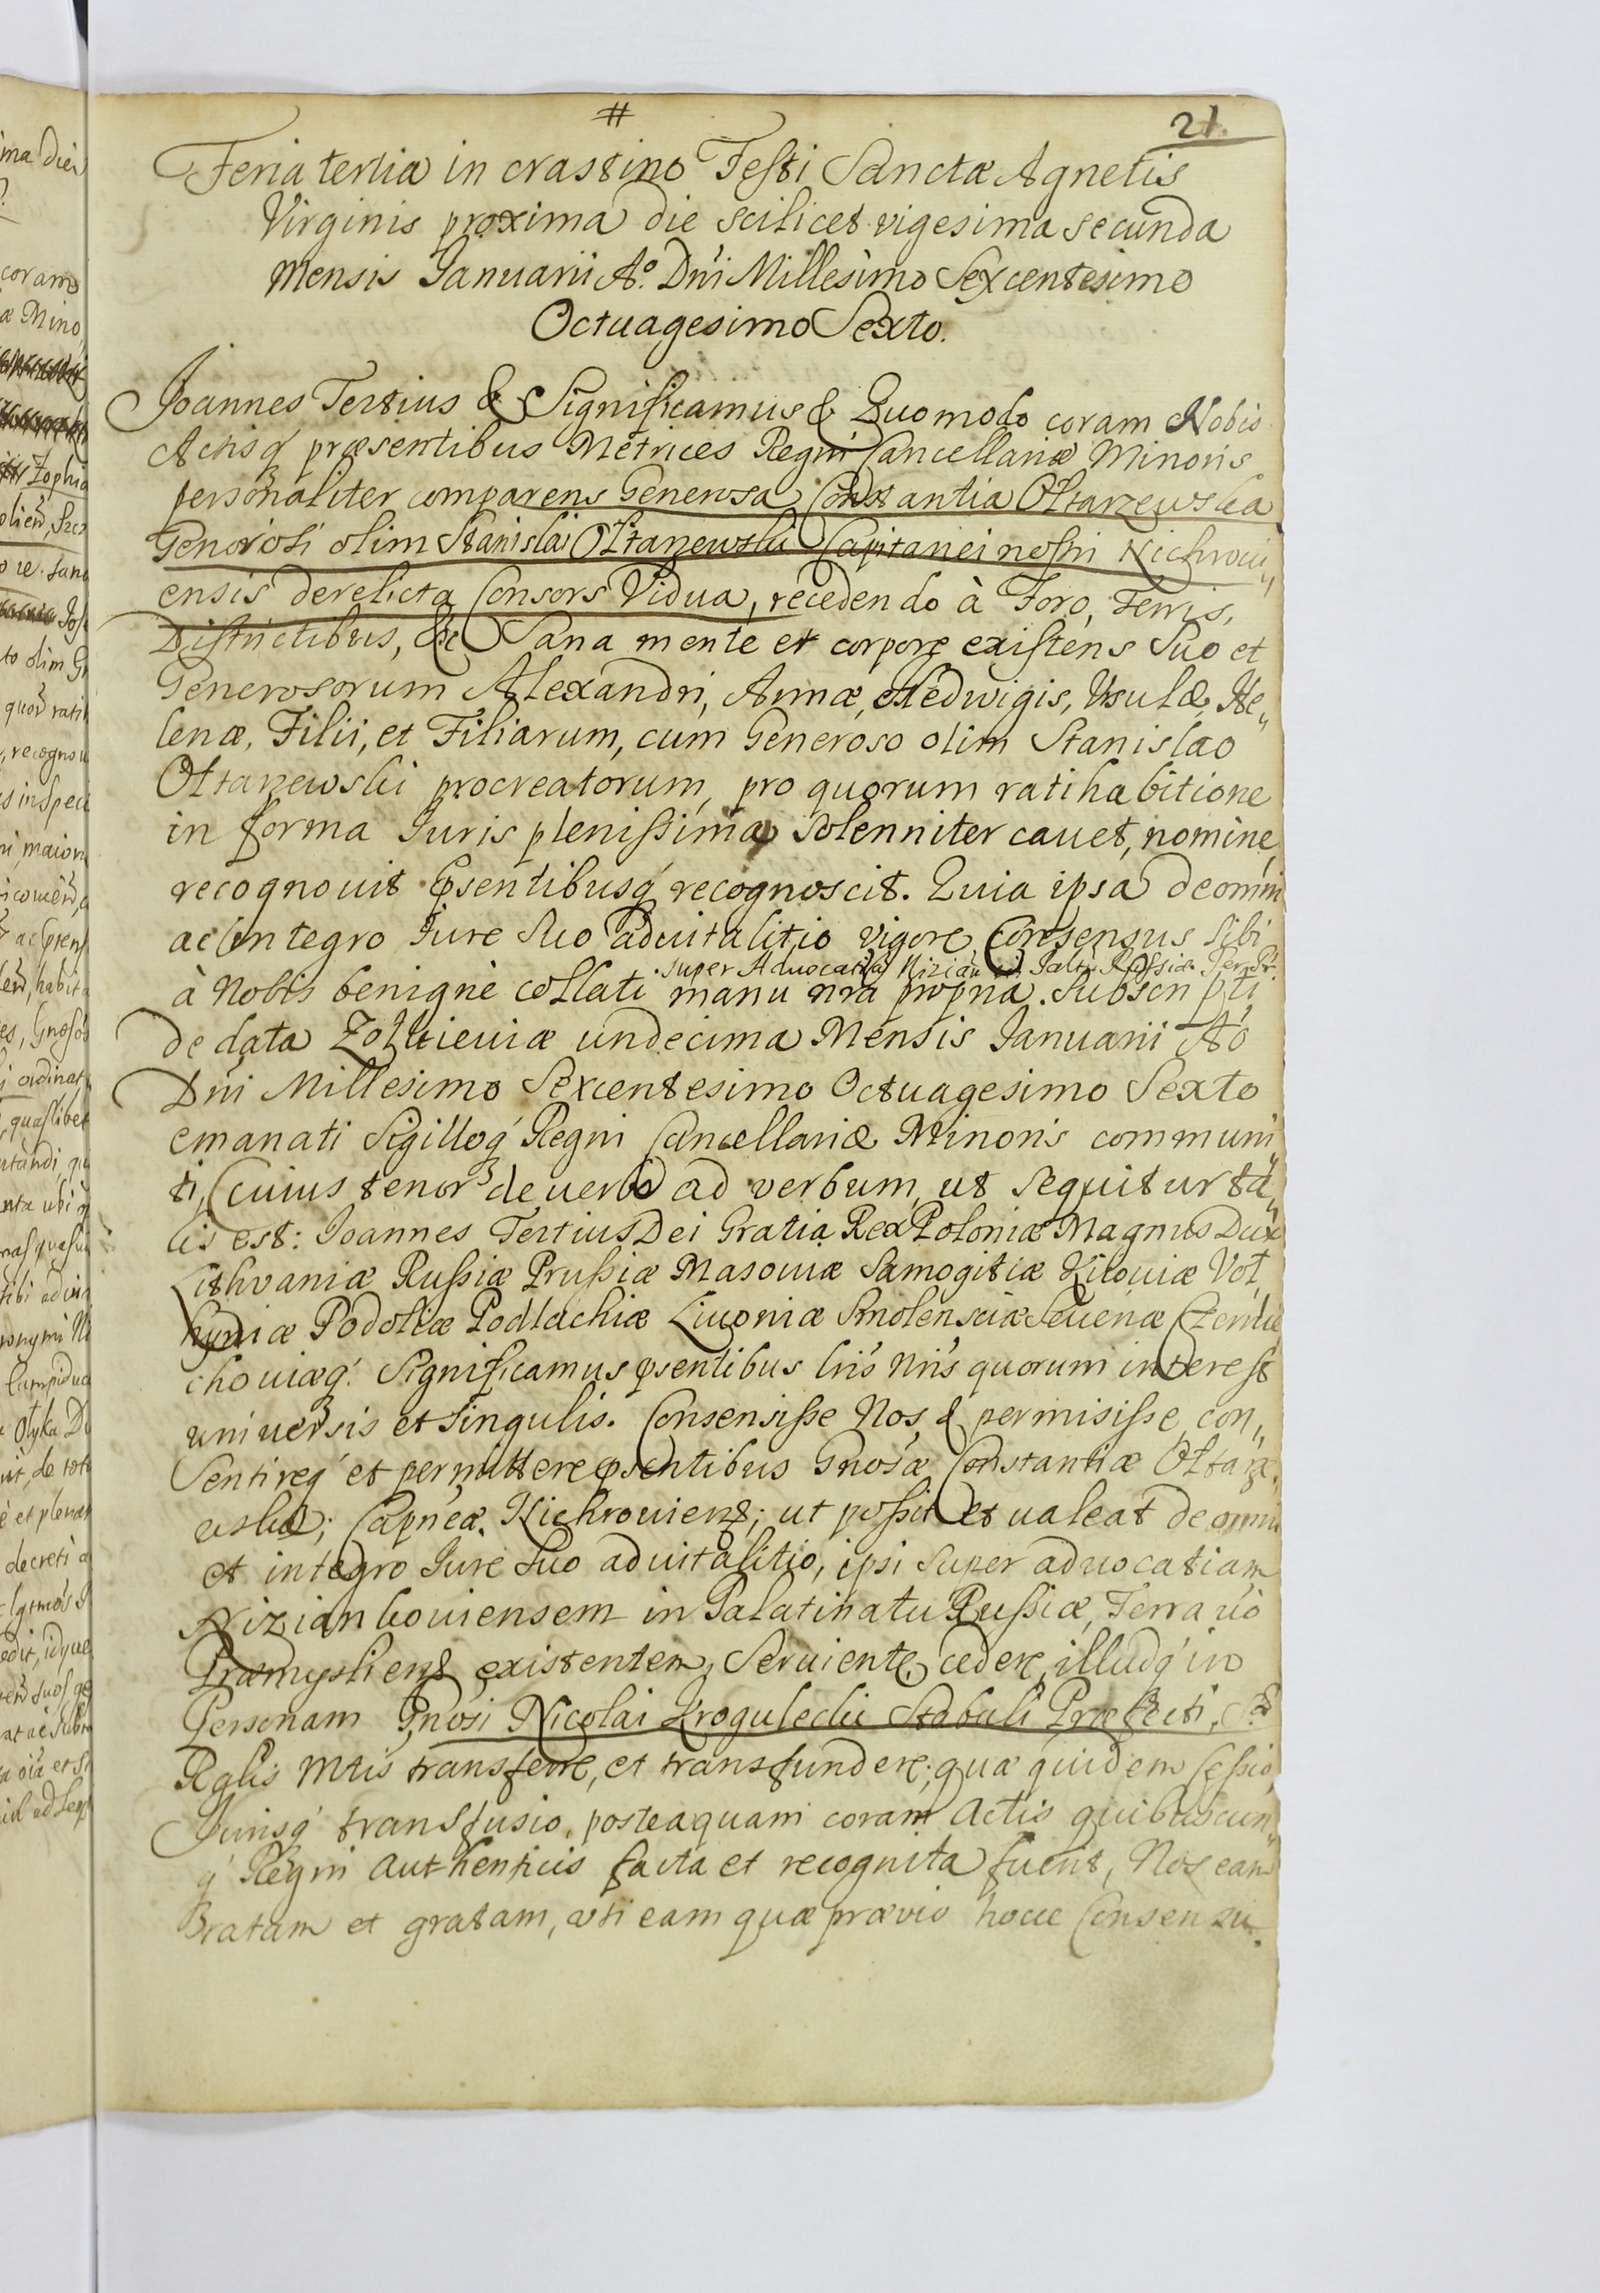 #
21.
Feria tertia in crastino Festi Sanctæ Agnetis
Virginis proxima die scilicet vigesima secunda
mensis Januarii Aº. Dn̄i Millesimo Sexcentesimo
Octuagesimo Sexto.
Joannes Tertius & Significamus & Quomodo coram Nobis
Actisq́ præsentibus Metrices Regni Cancellariæ Minoris
personaliter comparens Generosa Constantia Ołtarzewska
Generosi olim Stanislai Ołtarzewski Capitanei nostri Nichrovi„
ensis derelicta Consors Vidua, recedendo à Foro, Terris,
Districtibus, &c Sana mente et corpore existens Suo et
Generosorum Alexandri, Annæ, Hedwigis, Ursulæ, He„
lenæ, Filii, et Filiarum, cum Generoso olim Stanislao
Ołtarzewski procreatorum, pro quorum ratihabitione
in forma Juris plenissima solenniter cavet, nomine,
recognouit p̄sentibusq́ recognoscit. Quia ipsa de omni
ac integro Jure Suo aduitalitio vigore Consensus Sibi
super Aduocatia
à Nobis benignè collati manu nrā propria Subscripti
de data Zołkieviæ undecima Mensis Januarii Aō
Dn̄i Millesimo Sexcentesimo Octuagesimo Sexto
emanati Sigilloq́ Regni Cancellariæ Minoris communi„
ti, Cuius tenor de uerbo ad verbum ut sequitur ta„
lis est: Joannes Tertius Dei Gratia Rex Poloniæ Magnus Dux
Lithvaniæ Russiæ Prussiæ Masoviæ Samogitiæ Kiioviæ Voł„
hyniæ Podoliæ Podlachiæ Livoniæ Smolensciæ Severiæ Czernie„
choviæq́. Significamus p̄sentibus lrīs nrīs quorum interest
universis et singulis. Consensisse Nos, & permisisse, con„
sentireq́ et permittere p̄sentibus Gnosæ Constantiæ Ołtarze„
wska; Capneæ. Nichroviens; ut possit et ualeat de omni
et integro Jure Suo aduitalitio, ipsi super aduocatiam
Niziankoviensem in Palatinatu Russiæ, Terra v̄o
Præmysliens existentem, Seruiente cedere, illudq́ in
Personam Gnosi Nicolai Kroguleclii Stabuli Præfecti,
Rglis Mtis transferre, et transfundere; quæ quidem Cessio,
Jurisq́ transfusio, posteaquam coram Actis quibuscun„
q́ Regni authenticis facta et recognita fuerit, Nos eam
Bratam et gratam, uti eam quæ prævio hocce Consensu